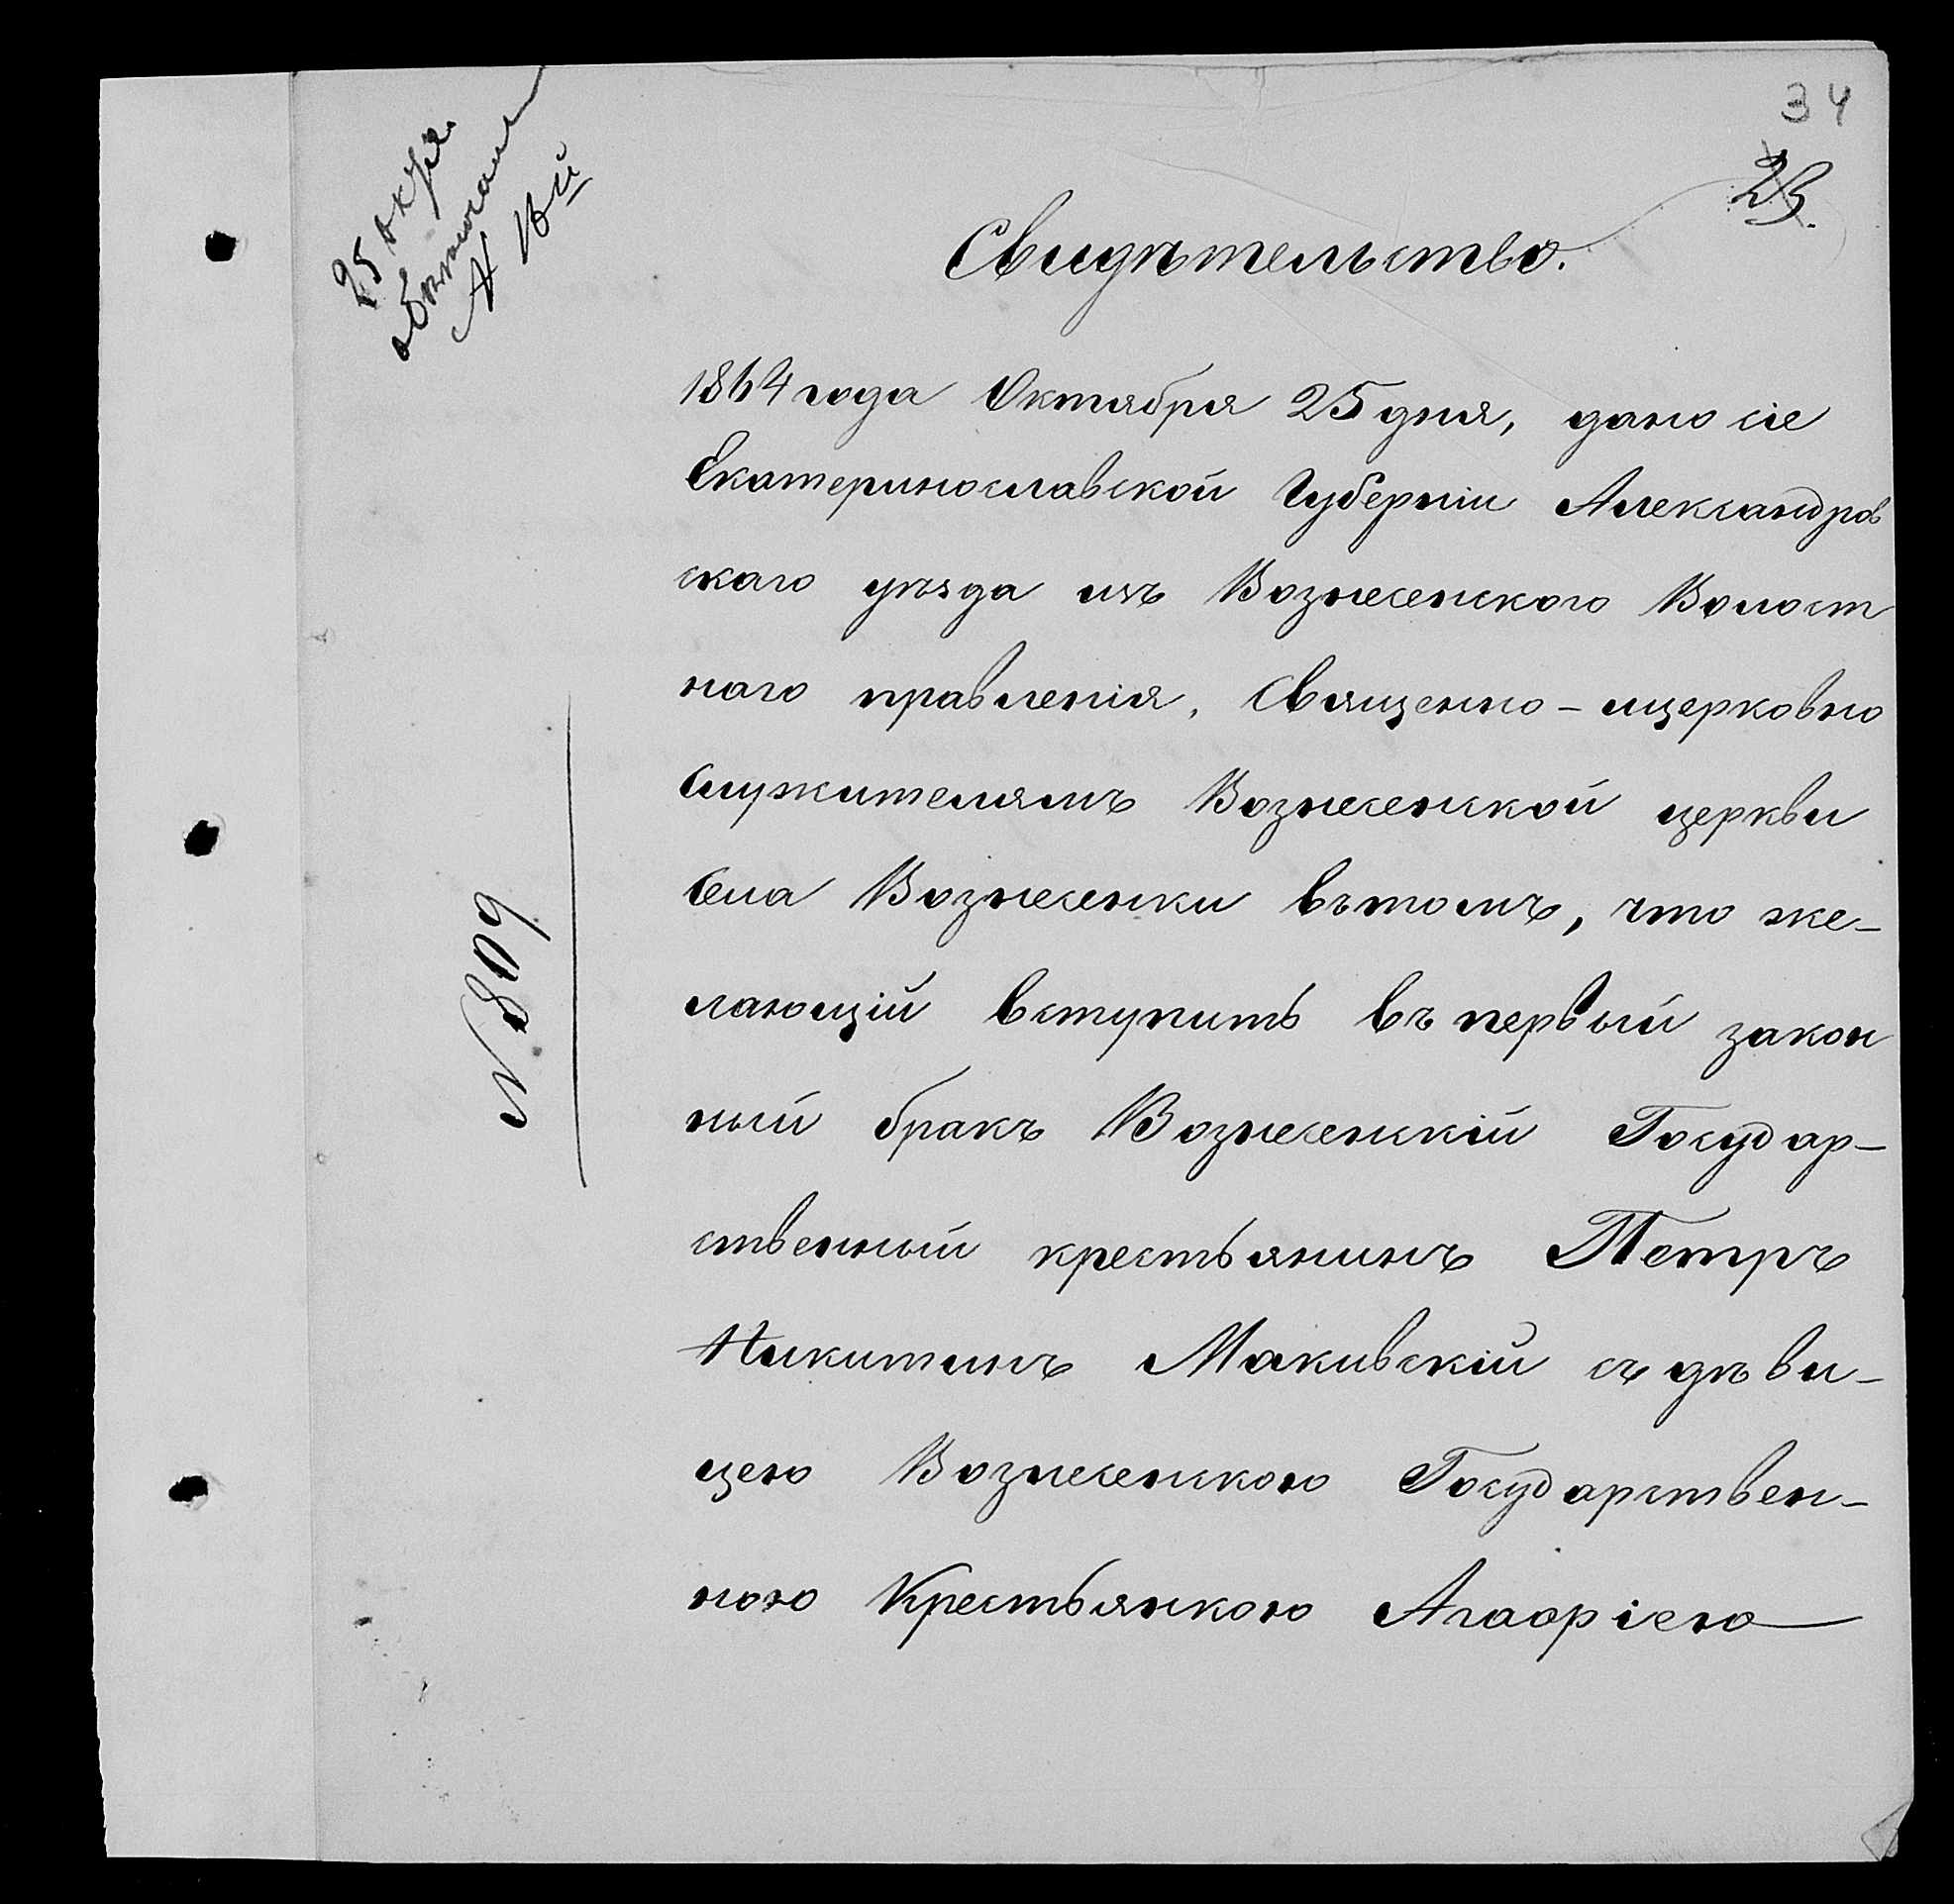 34
23.
25 окт.
Свидѣтельство.
1864 года Октября 25 дня, дано сіе
Екатеринославской Губерніи Александров
скаго уѣзда изъ Вознесенского Волост
наго правленія, Священно-церковно
служителямъ Вознесенской церкви
села Вознесенки въ томъ, что же-
лающій вступить въ первый закон
ный бракъ Вознесенскій Государ-
ственный крестьянинъ Петръ
Никитинъ Макивскій съ дѣви-
цею Вознесенскою Государствен-
ною Крестьянкою Агафіею
№ 809